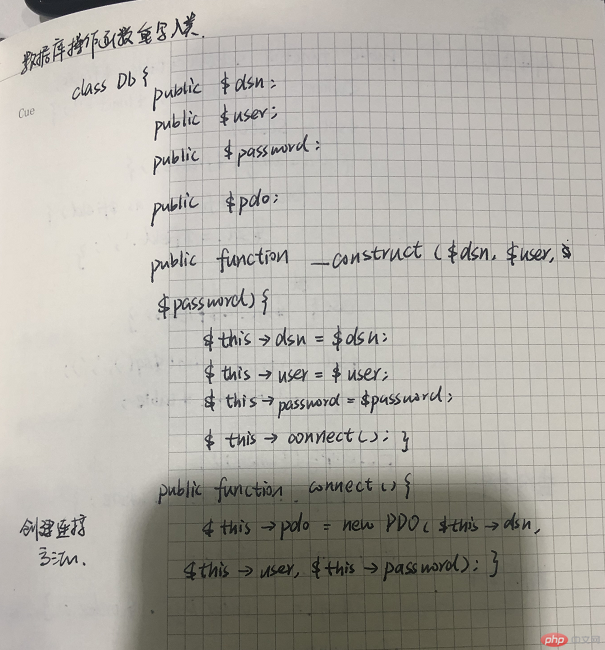 数据库操作函数重写入类.
class Db {
Cue
public $dsn;
public $user;
public $password;
public $pdo;
public function __construct ($dsn, $user, $
$password) {
$this→dsn = $dsn;
$this→user = $user;
$this→password = $password;
$this→connect(); }
public function connect() {
创建连接
方法.
$this→pdo = new PDO($this→dsn,
$this→user, $this→password); }
php中文网